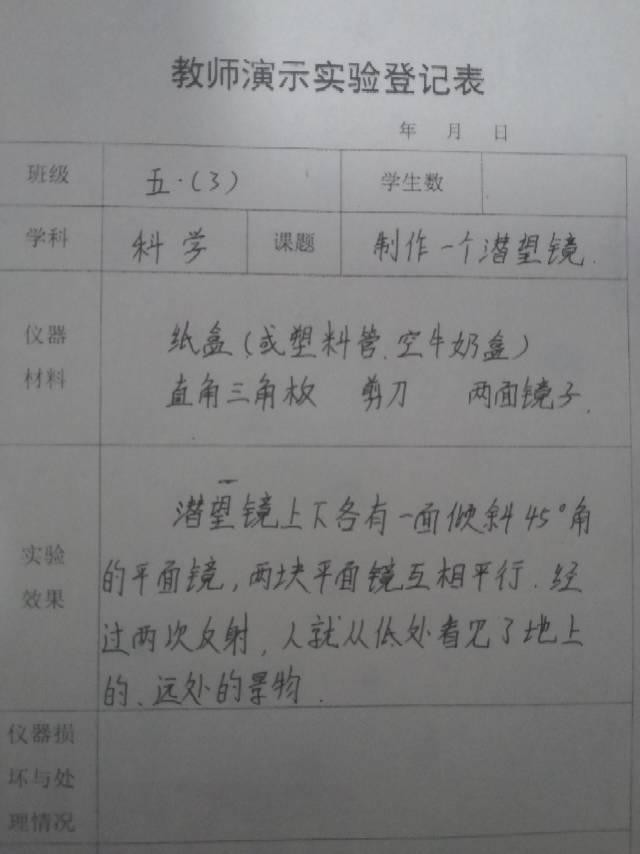 教师演示实验登记表
年 月 日
班级 五.(3) 学生数
学科 科学 课题 制作一个潜望镜.
仪器 纸盒(或塑料管、空牛奶盒)
材料 直角三角板 剪刀 两面镜子.
潜望镜上下各有一面倾斜45°角
实验 的平面镜,两块平面镜互相平行.经
效果 过两次反射,人就从低处看见了地上
的、远处的景物.
仪器损
坏与处
理情况